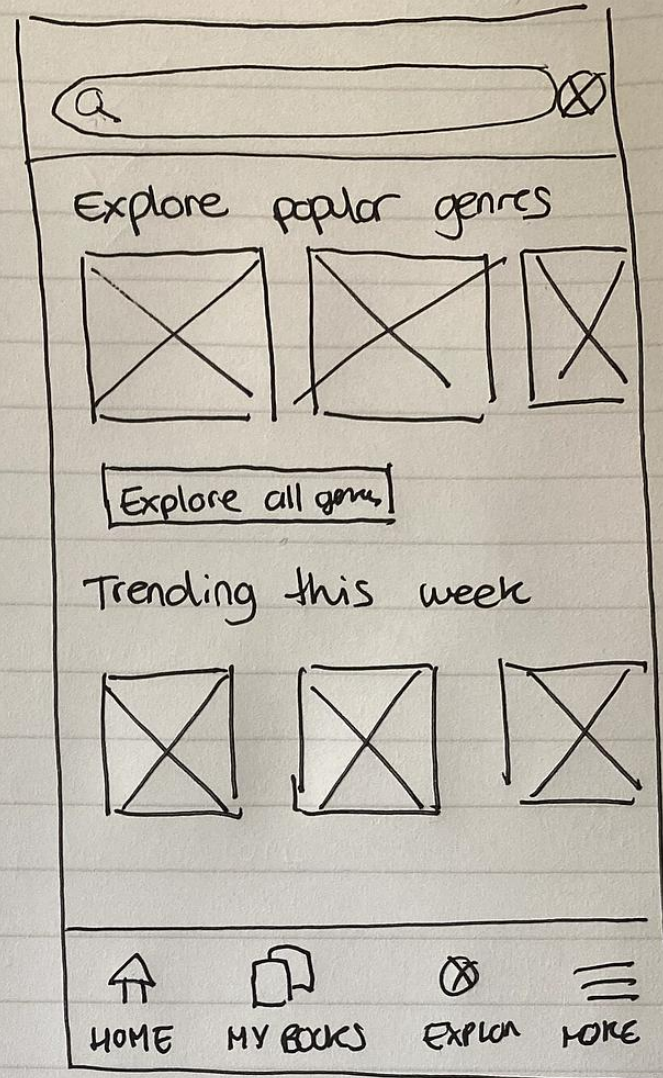 Explore popular genres
Explore all genres
Trending this week
HOME MY BOOKS EXPLOR MORE